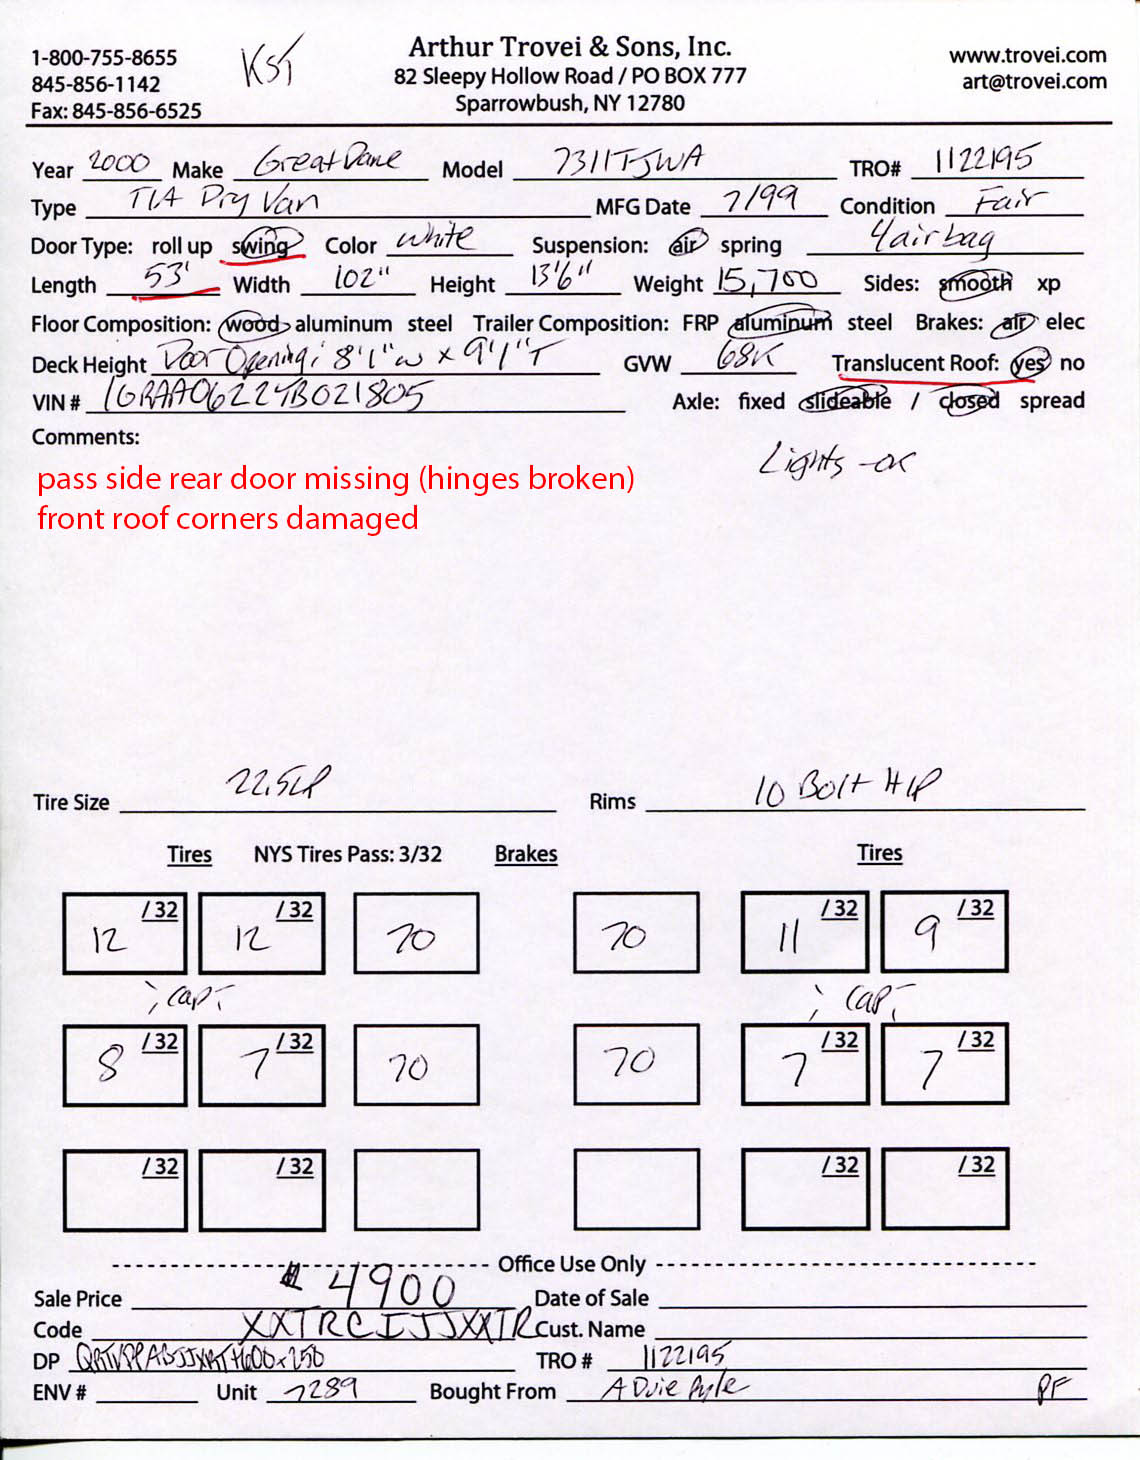 1-800-755-8655
845-856-1142
Fax: 845-856-6525
KST
Arthur Trovei & Sons, Inc.
82 Sleepy Hollow Road / PO BOX 777
Sparrowbush, NY 12780
www.trovei.com
art@trovei.com
Year 2000 Make Great Dane Model 7311TJWA TRO# 1122195
Type T/A Dry Van MFG Date 7/99 Condition Fair
Door Type: roll up swing Color white Suspension: air spring 4 air bag
Length 53' Width 102" Height 13'6" Weight 15,700 Sides: smooth xp
Floor Composition: wood aluminum steel Trailer Composition: FRP aluminum steel Brakes: air elec
Deck Height Door Opening: 8'1"w x 9'1"T GVW 68K Translucent Roof: yes no
VIN # 1GRAA0622YB021805 Axle: fixed slideable / closed spread
Comments:
Lights - ok
pass side rear door missing (hinges broken)
front roof corners damaged
Tire Size 22.5LP Rims 10 Bolt HP
Tires NYS Tires Pass: 3/32 Brakes Tires
12 /32 12 /32 70 70 11 /32 9 /32
cap cap
8 /32 7 /32 70 70 7 /32 7 /32
/32 /32 /32 /32
Office Use Only
Sale Price $4900 Date of Sale
Code XXTRCIJJXXTR Cust. Name
DP TRO # 1122195
ENV # Unit 7289 Bought From A Duie Pyle PF